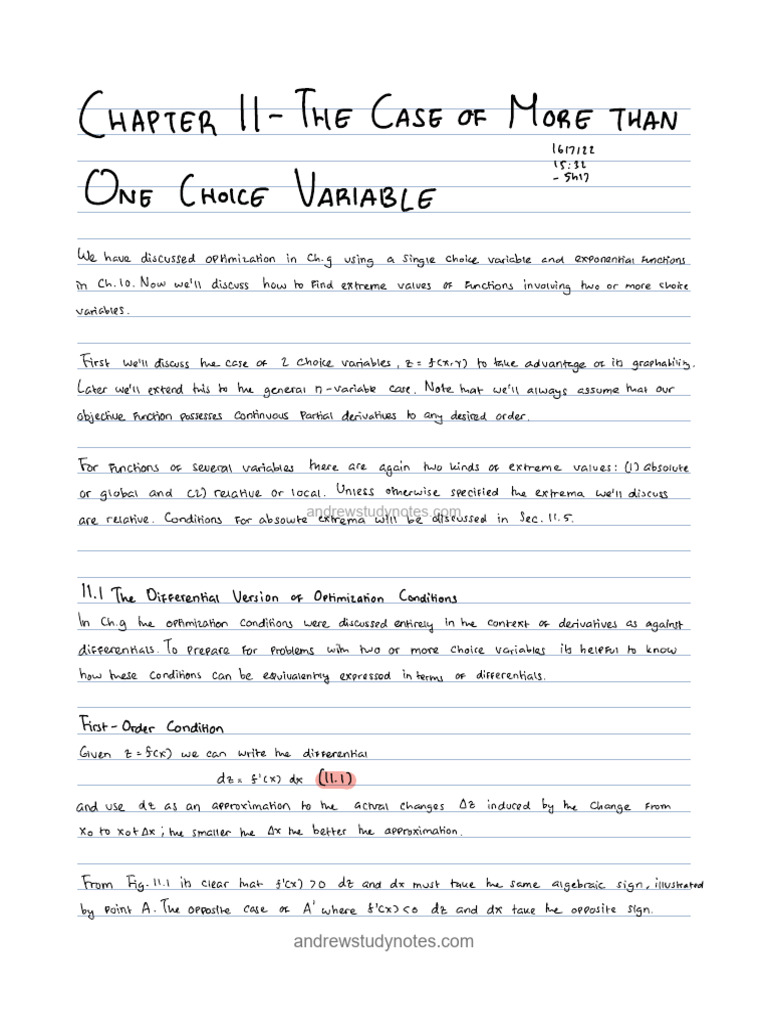 CHAPTER 11 - THE CASE OF MORE THAN
16/7/22
15:32
- 5h17
ONE CHOICE VARIABLE
We have discussed optimization in Ch.9 using a single choice variable and exponential functions
in Ch.10. Now we'll discuss how to find extreme values of functions involving two or more choice
variables.
First we'll discuss the case of 2 choice variables, z = f(x,y) to take advantage of its graphability.
Later we'll extend this to the general n-variable case. Note that we'll always assume that our
objective function possesses continuous partial derivatives to any desired order.
For functions of several variables there are again two kinds of extreme values: (1) absolute
or global and (2) relative or local. Unless otherwise specified the extrema we'll discuss
are relative. Conditions for absolute extrema will be discussed in Sec. 11.5.
andrewstudynotes.com
11.1 The Differential Version of Optimization Conditions
In Ch.9 the optimization conditions were discussed entirely in the context of derivatives as against
differentials. To prepare for problems with two or more choice variables its helpful to know
how these conditions can be equivalently expressed in terms of differentials.
First-Order Condition
Given z = f(x) we can write the differential
dz = f'(x) dx (11.1)
and use dz as an approximation to the actual changes Δz induced by the change from
x₀ to x₀+Δx; the smaller the Δx the better the approximation.
From Fig. 11.1 its clear that f'(x) >0 dz and dx must take the same algebraic sign, illustrated
by point A. The opposite case of A' where f'(x)<0 dz and dx take the opposite sign.
andrewstudynotes.com